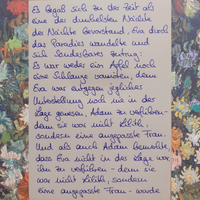 Es begab sich zu der Zeit als
eine der dunkelsten Nächte
der Nächte bevorstand, Eva durch
das Paradies wandelte und
sich sonderbares zutrug:
Es war weder ein Apfel noch
eine Schlange zumindest, denn
Eva war entgegen jeglicher
Unterstellung noch nie in der
Lage gewesen, Adam zu verführen-
denn sie war nicht Lilith,
sondern eine angepasste Frau.
Und als auch Adam bemerkte,
dass Eva nicht in der Lage war
ihn zu verführen - denn sie
war nicht Lilith, sondern
eine angepasste Frau - wurde